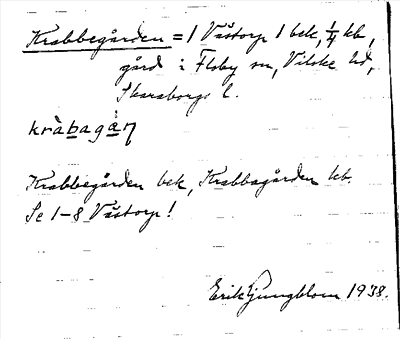 Krabbegården = 1 Västorp 1 bek, 1/4 kbr,
gård i Floby sn, Vilske hd,
Skaraborgs l.
kràbagåɳ
Krabbegården bek, Krabbagården kb.
Se 1-8 Västorp!
Erik Ljungblom 1938.